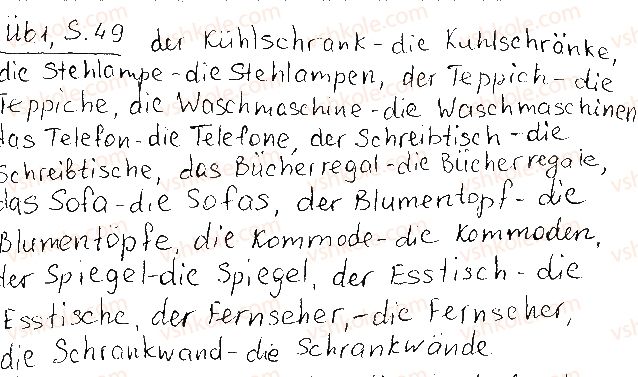 Üb1, S. 49 der Kühlschrank - die Kuhlschränke,
die Stehlampe - die Stehlampen, der Teppich - die
Teppiche, die Waschmaschine - die Waschmaschinen
das Telefon - die Telefone, der Schreibtisch - die
Schreibtische, das Bücherregal - die Bücherregale,
das Sofa - die Sofas, der Blumentopf - die
Blumentöpfe, die Kommode - die Kommoden,
der Spiegel - die Spiegel, der Esstisch - die
Esstische, der Fernseher, - die Fernseher,
die Schrankwand - die Schrankwände